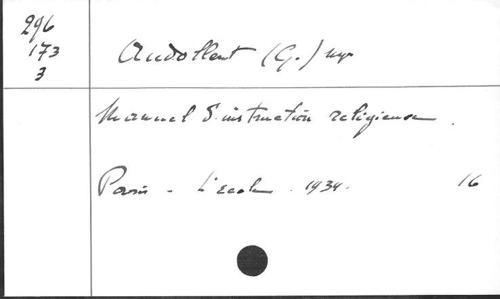 296
173
3
Audollent (G.) Mgr
Manuel d'instruction religieuse.
Paris - L'école. 1934. 16